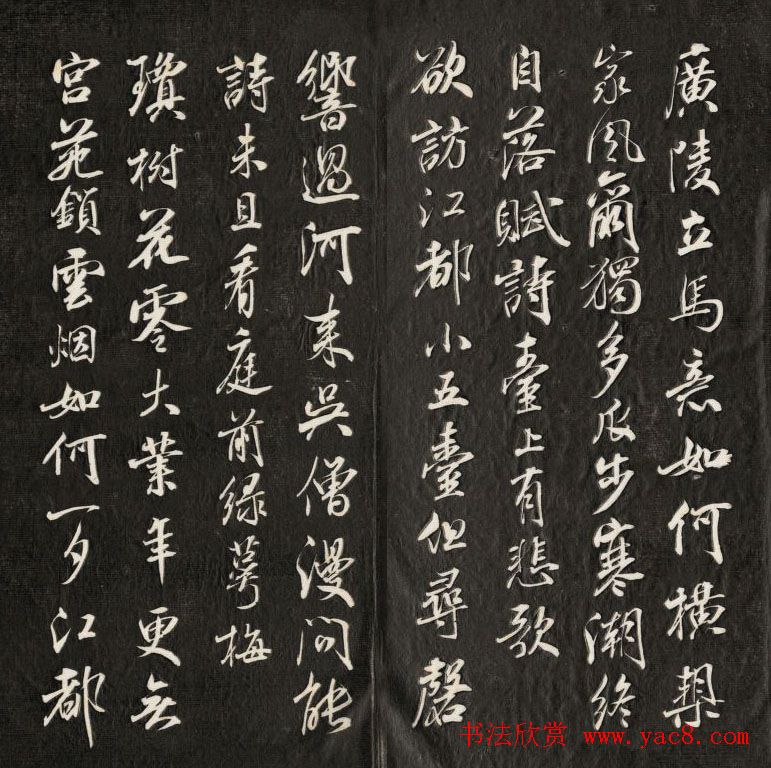 廣陵立馬意如何横槊
家風爾獨多瓜步寒潮終
自落賦詩臺上有悲歌
欲訪江都小五臺但尋磬
響過河来吳僧漫問能
詩未且看庭前緑萼梅
瓊樹花零大業年更無
宫苑鎖雲烟如何一夕江都
书法欣赏 www.yac8.com